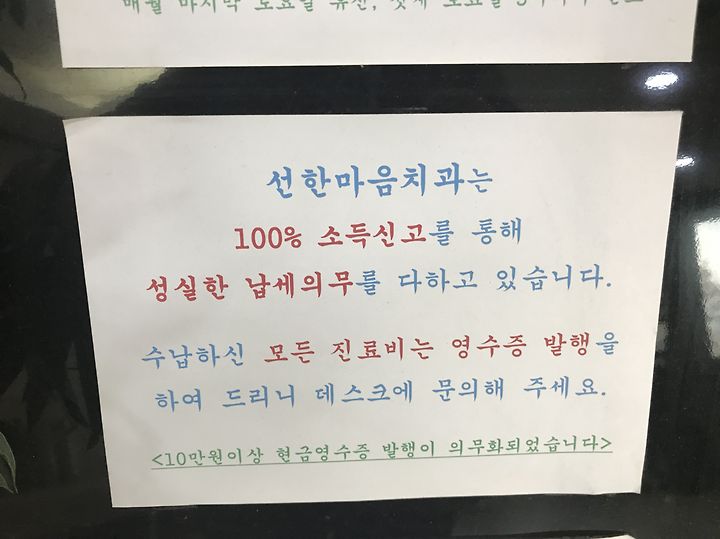 매월 마지막 토요일 휴진, 첫째 토요일
선한마음치과는
100% 소득신고를 통해
성실한 납세의무를 다하고 있습니다.
수납하신 모든 진료비는 영수증 발행을
하여 드리니 데스크에 문의해 주세요.
<10만원이상 현금영수증 발행이 의무화되었습니다>